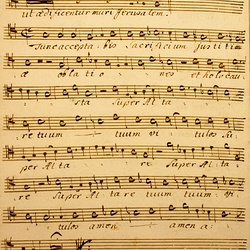 ut ædificentur muri Jerusalem.
Tunc acceptabis Sacrificium Justitiæ
æ oblatio nes et holocau
sta super Alta
re tuum tuum vi tulos Su
per Alta re super Alta
super Alta re tuum tuum vi
tulos amen amen a